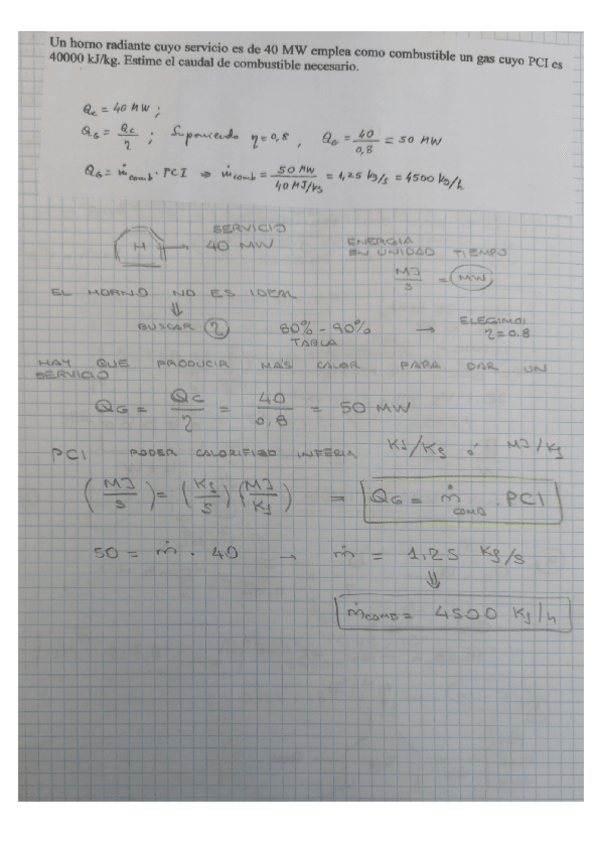 Un horno radiante cuyo servicio es de 40 MW emplea como combustible un gas cuyo PCI es
40000 kJ/kg. Estime el caudal de combustible necesario.
Qc = 40 MW ;
QG = Qc/η ; Suponiendo η=0,8 , QG = 40/0,8 = 50 MW
QG = ṁcomb · PCI ⇒ ṁcomb = 50 MW/40 MJ/kg = 1,25 kg/s = 4500 kg/h
SERVICIO
H → 40 MW
ENERGIA
EN UNIDAD TIEMPO
MJ/s = MW
EL HORNO NO ES IDEAL
⇓
BUSCAR η 80% - 90% → ELEGIMOS
TABLA η=0.8
HAY QUE PRODUCIR MAS CALOR PARA DAR UN
SERVICIO
QG = QC/η = 40/0,8 = 50 MW
PCI PODER CALORIFICO INFERIOR KJ/Kg ó MJ/Kg
(MJ/s) = (Kg/s) (MJ/Kg) = QG = ṁ COMB . PCI
50 = ṁ . 40 → ṁ = 1,25 Kg/s
⇓
ṁCOMB = 4500 Kg/h